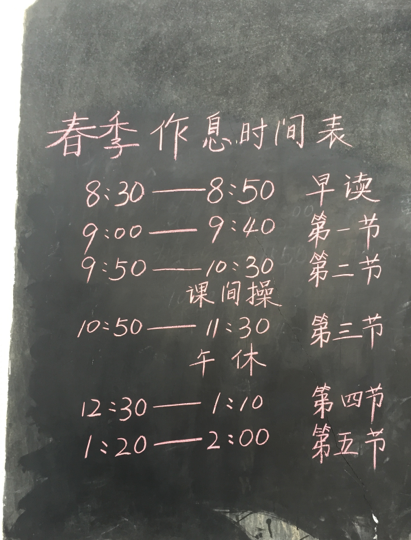 春季作息时间表
8:30——8:50 早读
9:00——9:40 第一节
9:50——10:30 第二节
课间操
10:50——11:30 第三节
午休
12:30——1:10 第四节
1:20——2:00 第五节